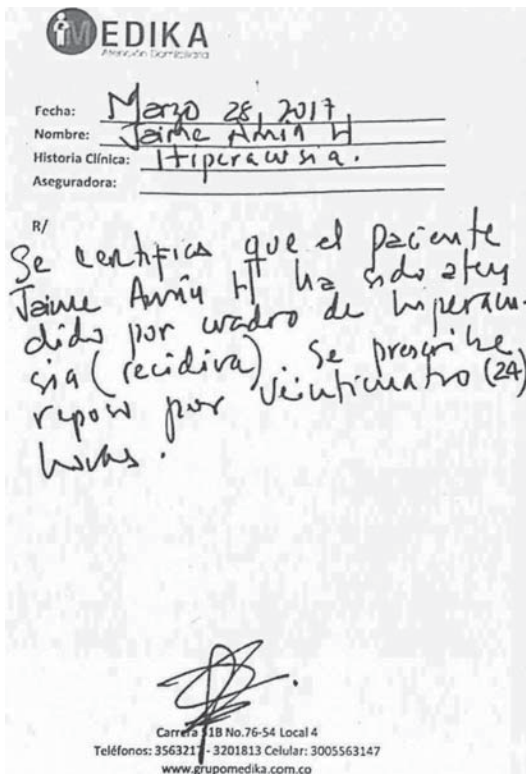 MEDIKA
Atención Domiciliaria
Fecha: Marzo 28, 2017
Nombre: Jaime Amin H
Historia Clínica: Hiperacusia.
Aseguradora:
R/
Se certifica que el paciente
Jaime Amin H ha sido aten
dido por cuadro de hiperacu-
sia (recidiva). Se prescribe
reposo por veinticuatro (24)
horas.
Carrera 51B No.76-54 Local 4
Teléfonos: 3563217 - 3201813 Celular: 3005563147
www.grupomedika.com.co